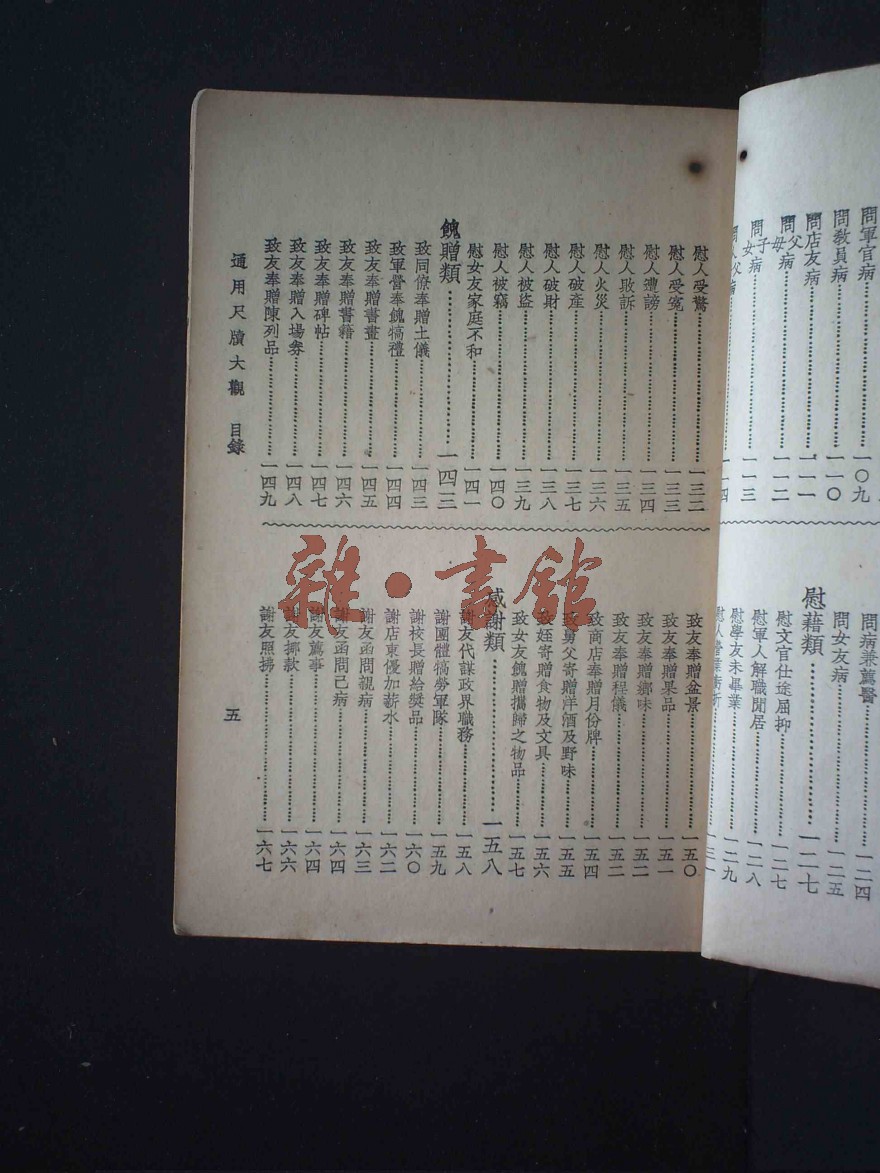 問軍官病⋯⋯一〇九
問教員病⋯⋯一一〇
問店友病⋯⋯一一一
問父母病⋯⋯一一二
問子女病⋯⋯一一三
問人父病⋯⋯一一四
問病兼薦醫⋯⋯一二四
問女友病⋯⋯一二五
慰藉類⋯⋯一二七
慰文官仕途屈抑⋯⋯一二七
慰軍人解職閒居⋯⋯一二八
慰學友未畢業⋯⋯一二九
慰人營業虧折⋯⋯一三一
慰人受驚⋯⋯一三二
慰人受寃⋯⋯一三三
慰人遭謗⋯⋯一三四
慰人敗訴⋯⋯一三五
慰人火災⋯⋯一三六
慰人破產⋯⋯一三七
慰人破財⋯⋯一三八
慰人被盜⋯⋯一三九
慰人被竊⋯⋯一四〇
慰女友家庭不和⋯⋯一四一
餽贈類⋯⋯一四三
致同僚奉贈土儀⋯⋯一四三
致軍營奉餽犒禮⋯⋯一四四
致友奉贈書畫⋯⋯一四五
致友奉贈書籍⋯⋯一四六
致友奉贈碑帖⋯⋯一四七
致友奉贈入場劵⋯⋯一四八
致友奉贈陳列品⋯⋯一四九
致友奉贈盆景⋯⋯一五〇
致友奉贈果品⋯⋯一五一
致友奉贈鄉味⋯⋯一五二
致友奉贈程儀⋯⋯一五二
致商店奉贈月份牌⋯⋯一五四
致舅父寄贈洋酒及野味⋯⋯一五五
致姪寄贈食物及文具⋯⋯一五六
致女友餽贈攜歸之物品⋯⋯一五七
感謝類⋯⋯一五八
謝友代謀政界職務⋯⋯一五八
謝團體犒勞軍隊⋯⋯一五九
謝校長贈給獎品⋯⋯一六〇
謝店東優加薪水⋯⋯一六二
謝友函問親病⋯⋯一六三
謝友函問己病⋯⋯一六四
謝友薦事⋯⋯一六四
謝友挪款⋯⋯一六六
謝友照拂⋯⋯一六七
通用尺牘大觀 目錄
五
雜·書館